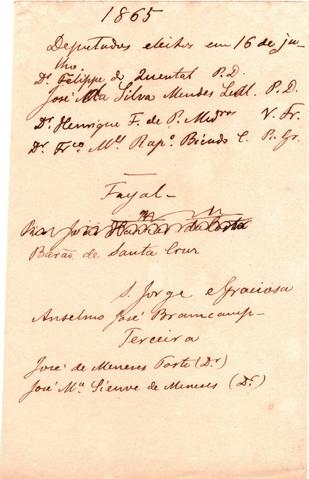 1865
Deputados eleitos em 16 de ju-
lho
Dr. Filippe de Quental P. D.
José Ma Silva Mendes Leal P. D.
Dr Henrique F. de P. Medros V. Fr.
Dr Frco Mel Rapo Bicudo C. P. Gr.
Fayal—
Barão de Santa Cruz
S. Jorge e Graciosa
Anselmo José Bramcamp—
Terceira
José de Meneses Forte (Dr)
José Ma Sieuve de Meneses (Dr)